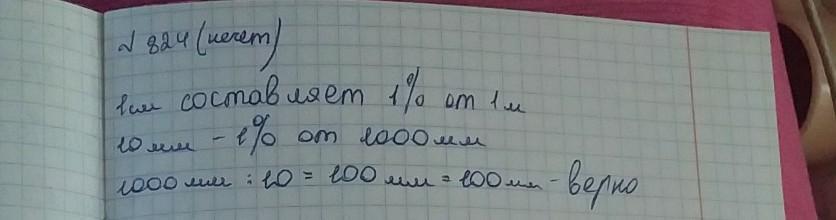 № 824 (нечет)
1см составляет 1% от 1м
10мм - 1% от 1000мм
1000мм : 10 = 100мм = 100мм - верно